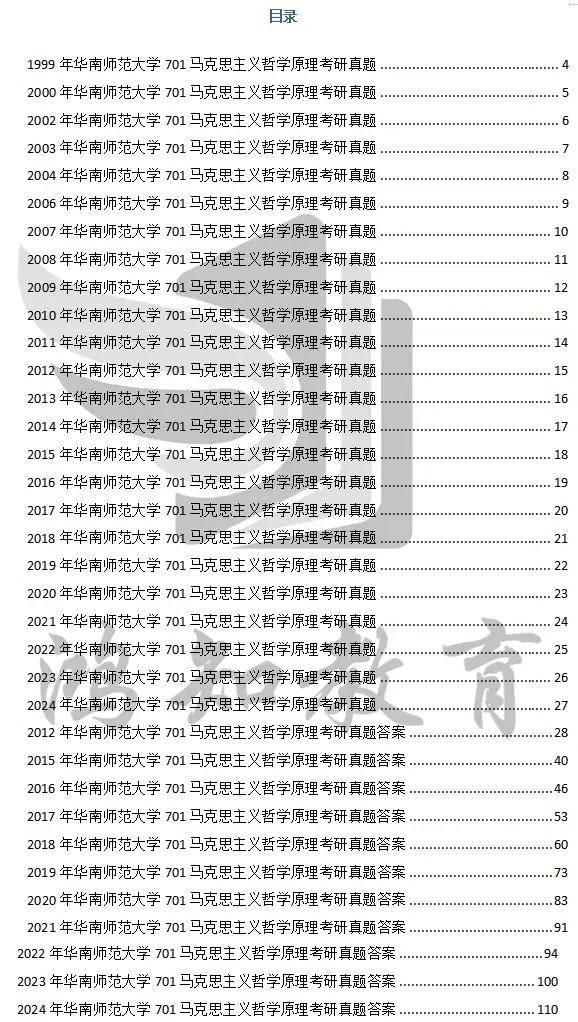 目录
1999 年华南师范大学 701 马克思主义哲学原理考研真题 ........................................ 4
2000 年华南师范大学 701 马克思主义哲学原理考研真题 ........................................ 5
2002 年华南师范大学 701 马克思主义哲学原理考研真题 ........................................ 6
2003 年华南师范大学 701 马克思主义哲学原理考研真题 ........................................ 7
2004 年华南师范大学 701 马克思主义哲学原理考研真题 ........................................ 8
2006 年华南师范大学 701 马克思主义哲学原理考研真题 ........................................ 9
2007 年华南师范大学 701 马克思主义哲学原理考研真题 ...................................... 10
2008 年华南师范大学 701 马克思主义哲学原理考研真题 ...................................... 11
2009 年华南师范大学 701 马克思主义哲学原理考研真题 ...................................... 12
2010 年华南师范大学 701 马克思主义哲学原理考研真题 ...................................... 13
2011 年华南师范大学 701 马克思主义哲学原理考研真题 ...................................... 14
2012 年华南师范大学 701 马克思主义哲学原理考研真题 ...................................... 15
2013 年华南师范大学 701 马克思主义哲学原理考研真题 ...................................... 16
2014 年华南师范大学 701 马克思主义哲学原理考研真题 ...................................... 17
2015 年华南师范大学 701 马克思主义哲学原理考研真题 ...................................... 18
2016 年华南师范大学 701 马克思主义哲学原理考研真题 ...................................... 19
2017 年华南师范大学 701 马克思主义哲学原理考研真题 ...................................... 20
2018 年华南师范大学 701 马克思主义哲学原理考研真题 ...................................... 21
2019 年华南师范大学 701 马克思主义哲学原理考研真题 ...................................... 22
2020 年华南师范大学 701 马克思主义哲学原理考研真题 ...................................... 23
2021 年华南师范大学 701 马克思主义哲学原理考研真题 ...................................... 24
2022 年华南师范大学 701 马克思主义哲学原理考研真题 ...................................... 25
2023 年华南师范大学 701 马克思主义哲学原理考研真题 ...................................... 26
鸿知教育
2024 年华南师范大学 701 马克思主义哲学原理考研真题 ...................................... 27
2012 年华南师范大学 701 马克思主义哲学原理考研真题答案 ................................ 28
2015 年华南师范大学 701 马克思主义哲学原理考研真题答案 ................................ 40
2016 年华南师范大学 701 马克思主义哲学原理考研真题答案 ................................ 46
2017 年华南师范大学 701 马克思主义哲学原理考研真题答案 ................................ 53
2018 年华南师范大学 701 马克思主义哲学原理考研真题答案 ................................ 60
2019 年华南师范大学 701 马克思主义哲学原理考研真题答案 ................................ 73
2020 年华南师范大学 701 马克思主义哲学原理考研真题答案 ................................ 83
2021 年华南师范大学 701 马克思主义哲学原理考研真题答案 ................................ 91
2022 年华南师范大学 701 马克思主义哲学原理考研真题答案 ................................ 94
2023 年华南师范大学 701 马克思主义哲学原理考研真题答案 .............................. 100
2024 年华南师范大学 701 马克思主义哲学原理考研真题答案 .............................. 110